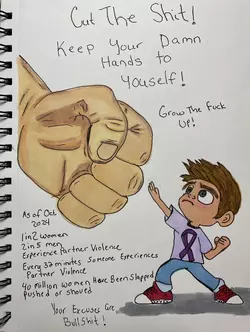 Cut The Shit!
Keep Your Damn
Hands to
Youself!
Grow The Fuck
Up!
As of Oct
2024
1 in 2 women
2 in 5 men
Experience Partner Violence
Every 32 minutes Someone Experiences
Partner Violence
40 million women Have Been Slapped
pushed or shoved
Your Excuses Are
Bullshit!